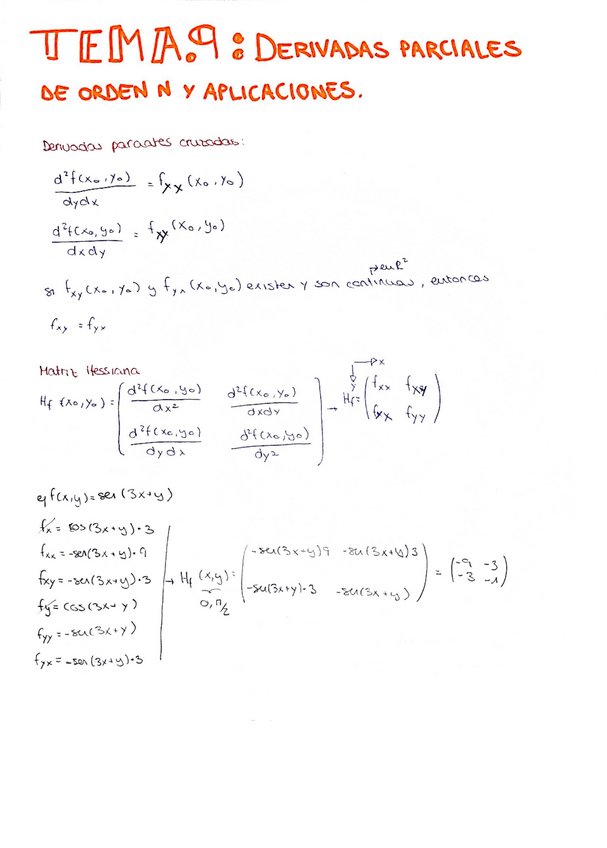 TEMA.9: DERIVADAS PARCIALES
DE ORDEN N Y APLICACIONES.
Derivadas parciales cruzadas:
d²f(x₀,y₀)/dydx = fyx (x₀,y₀)
d²f(x₀,y₀)/dxdy = fxy (x₀,y₀)
en R²
si fxy(x₀,y₀) y fyx(x₀,y₀) existen y son continuas, entonces
fxy = fyx
Matriz Hessiana
Hf (x₀,y₀) = ( d²f(x₀,y₀)/dx² d²f(x₀,y₀)/dxdy → Hf = ( fxx fxy
d²f(x₀,y₀)/dydx d²f(x₀,y₀)/dy² ) fyx fyy )
ej f(x,y) = sen(3x+y)
fx = cos(3x+y)·3
fxx = -sen(3x+y)·9
fxy = -sen(3x+y)·3 → Hf (x,y) = ( -sen(3x+y)9 -sen(3x+y)3 = ( -9 -3
0,π/2 -sen(3x+y)·3 -sen(3x+y) ) -3 -1 )
fy = cos(3x+y)
fyy = -sen(3x+y)
fyx = -sen(3x+y)·3